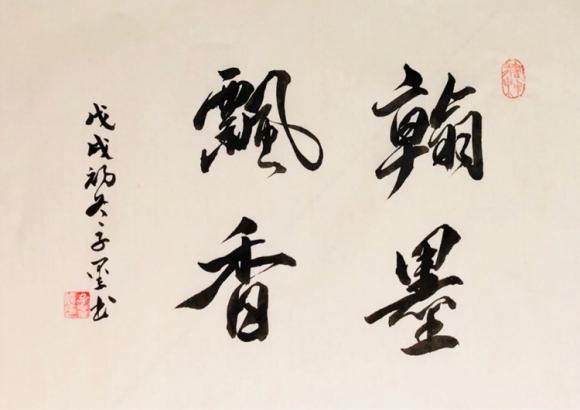 翰墨
飄香
戊戌初冬子墨书